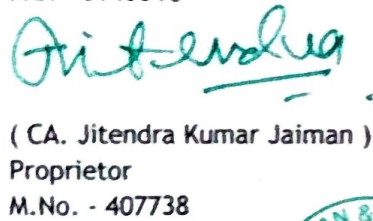 Jitendra
( CA. Jitendra Kumar Jaiman )
Proprietor
M.No. - 407738
N &